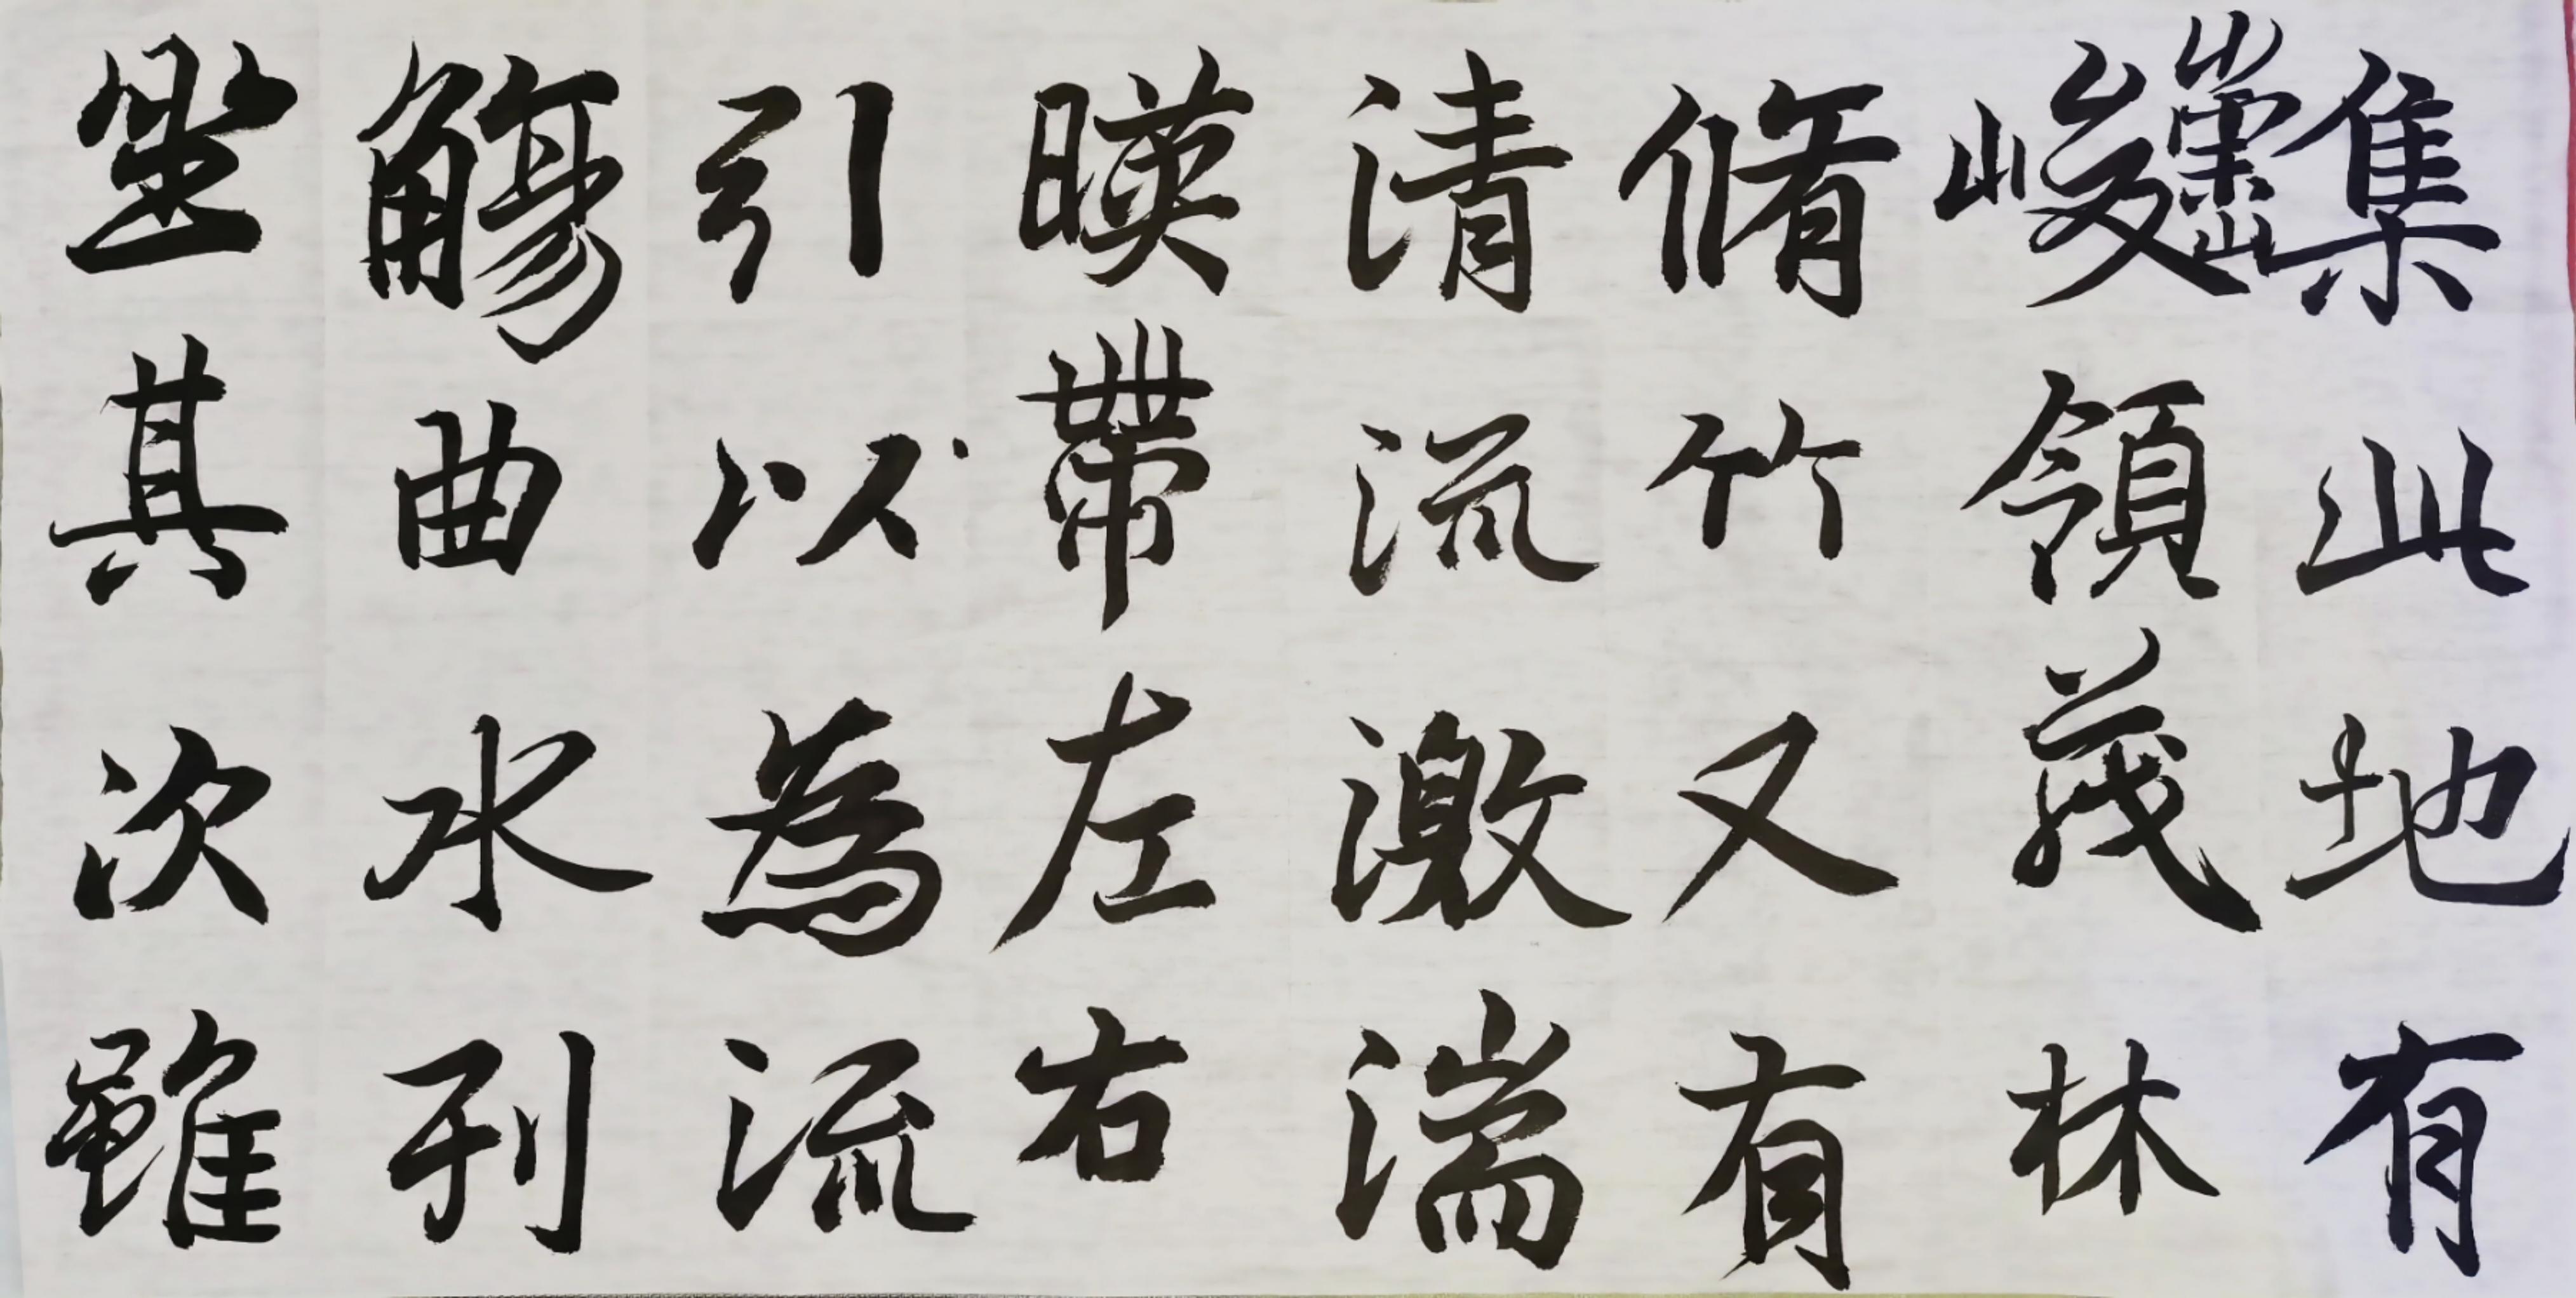 集此地有
崇山峻領茂林
脩竹又有
清流激湍
暎帶左右
引以為流
觴曲水列
坐其次雖